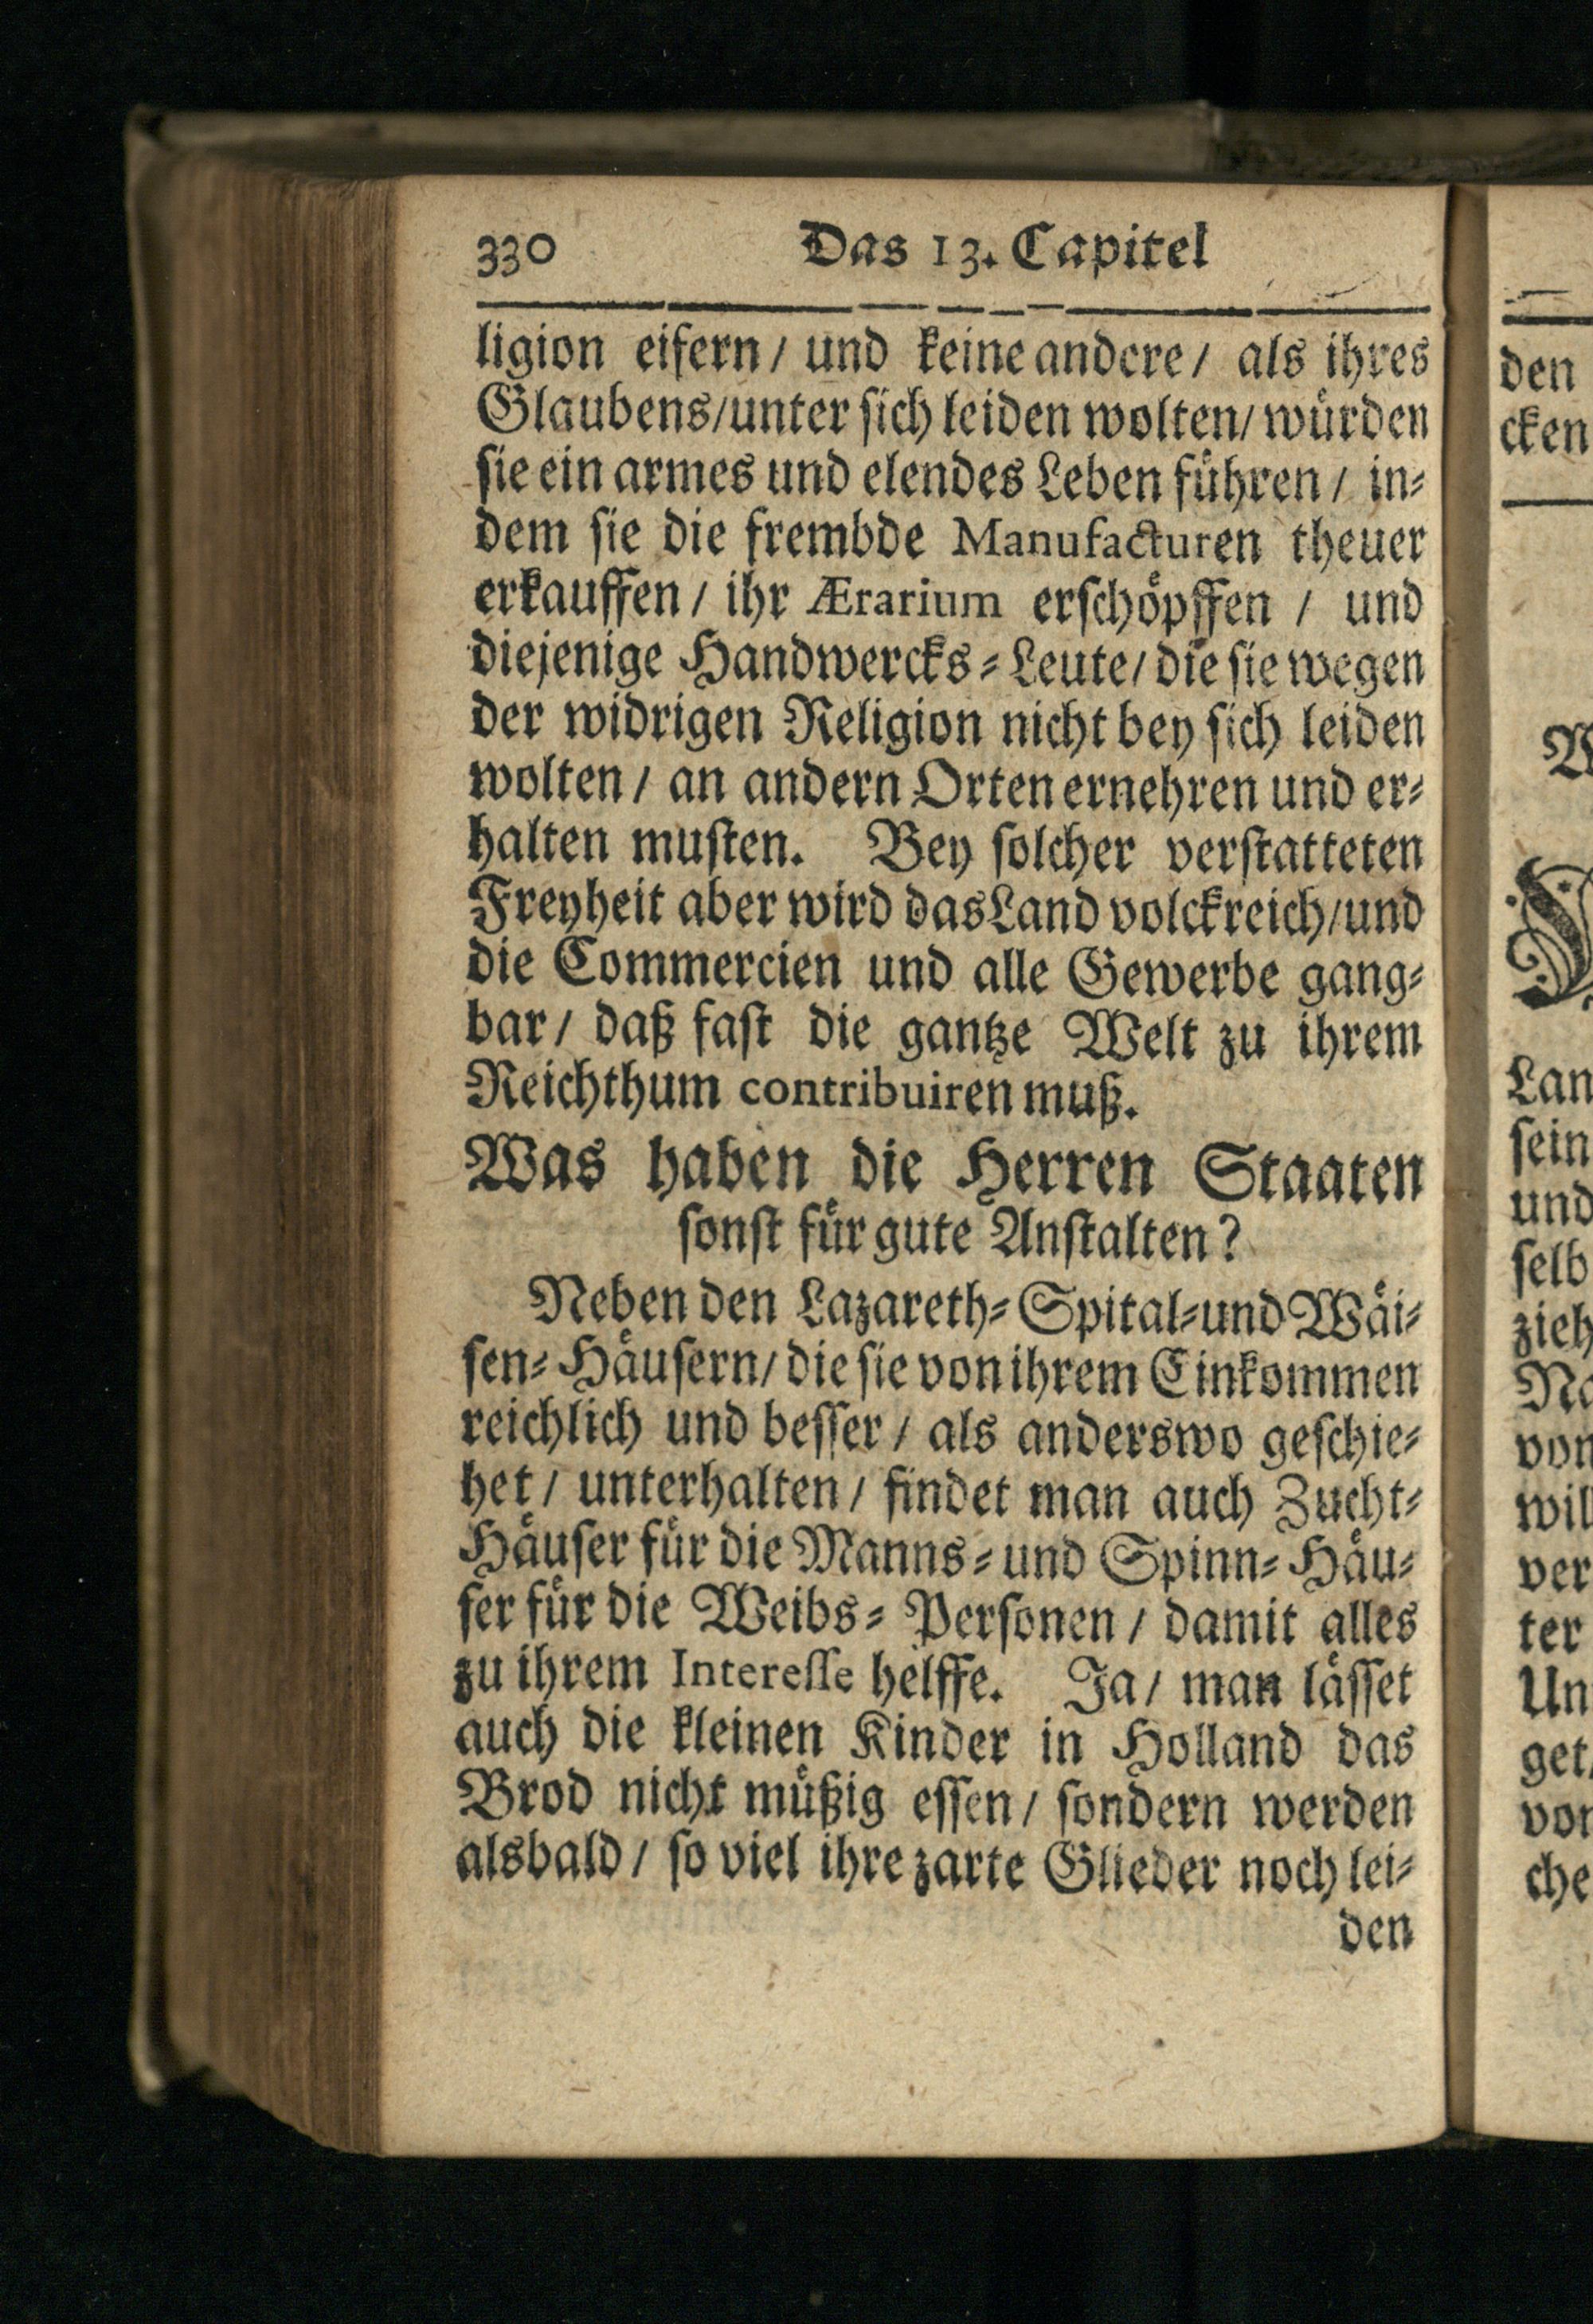 330 Das 13. Capitel
ligion eifern / und keine andere / als ihres
Glaubens/unter sich leiden wolten/ würden
sie ein armes und elendes Leben führen / in-
dem sie die frembde Manufacturen theuer
erkauffen / ihr Ærarium erschöpffen / und
diejenige Handwercks-Leute/ die sie wegen
der widrigen Religion nicht bey sich leiden
wolten / an andern Orten ernehren und er-
halten musten. Bey solcher verstatteten
Freyheit aber wird das Land volckreich/und
die Commercien und alle Gewerbe gang-
bar / daß fast die gantze Welt zu ihrem
Reichthum contribuiren muß.
Was haben die Herren Staaten
sonst für gute Anstalten?
Neben den Lazareth-Spital-und Wäi-
sen-Häusern/ die sie von ihrem Einkommen
reichlich und besser / als anderswo geschie-
het / unterhalten / findet man auch Zucht-
Häuser für die Manns-und Spinn-Häu-
ser für die Weibs-Personen / damit alles
zu ihrem Interesse helffe. Ja / man lässet
auch die kleinen Kinder in Holland das
Brod nicht müßig essen / sondern werden
alsbald / so viel ihre zarte Glieder noch lei-
den
den
cken
Lan
sein
und
selb
zieh
Na
von
wil
ver
ter
Un
get/
von
che